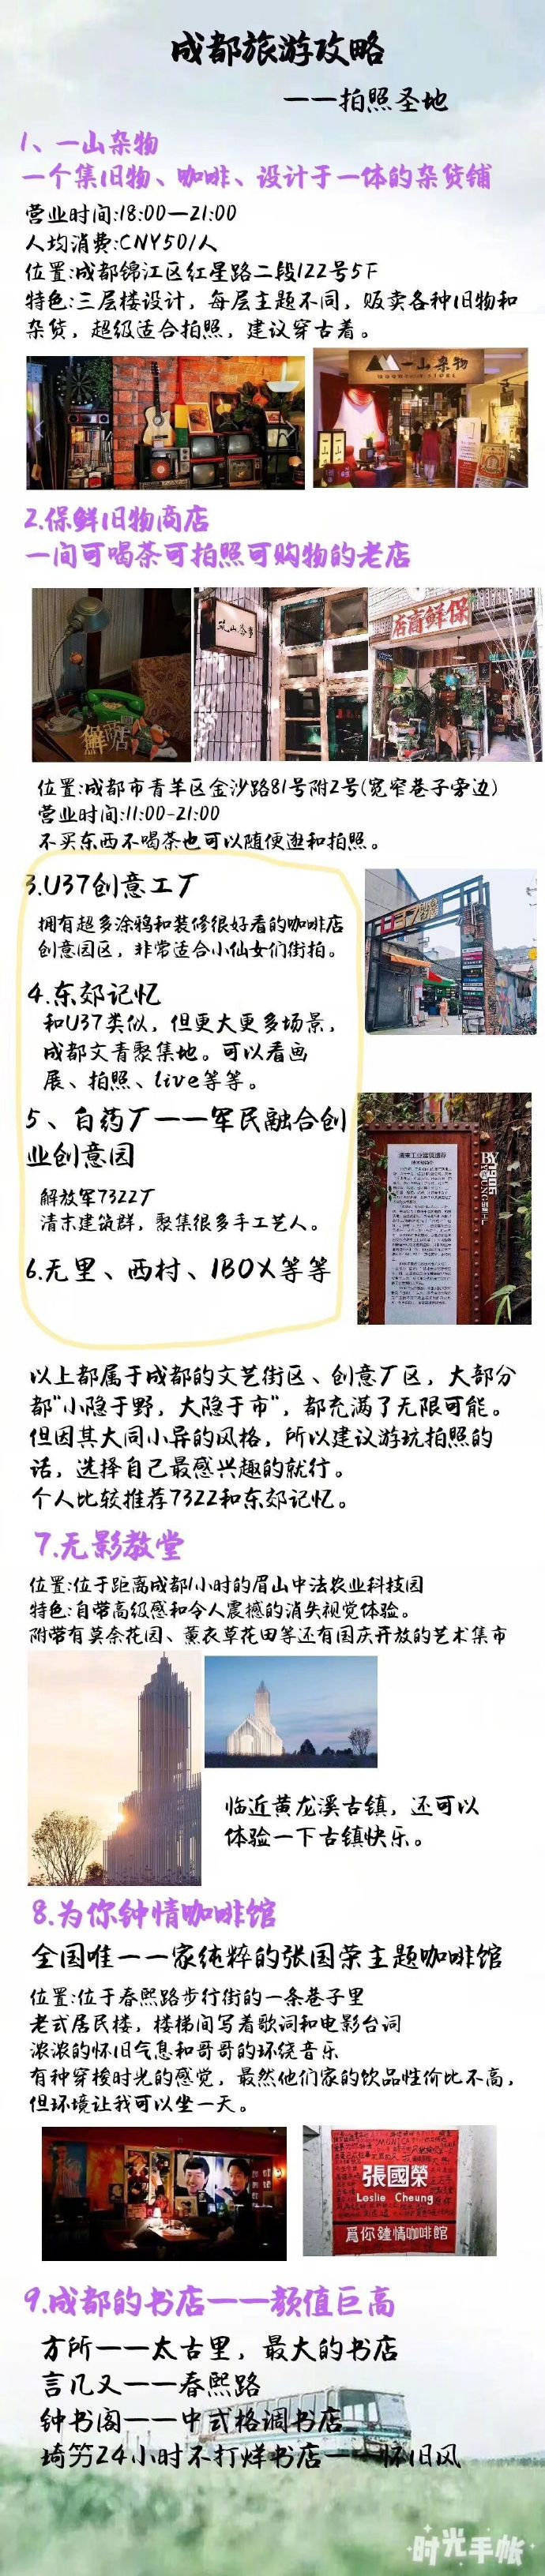 成都旅游攻略
——拍照圣地
1、一山杂物
一个集旧物、咖啡、设计于一体的杂货铺
营业时间:18:00—21:00
人均消费:CNY50/人
位置:成都锦江区红星路二段122号5F
特色:三层楼设计，每层主题不同，贩卖各种旧物和
杂货，超级适合拍照，建议穿古着。
一山杂物
2.保鲜旧物商店
一间可喝茶可拍照可购物的老店
筑山茶事
店商鲜保
位置:成都市青羊区金沙路81号附2号(宽窄巷子旁边)
营业时间:11:00-21:00
不买东西不喝茶也可以随便逛和拍照。
3.U37创意工厂
拥有超多涂鸦和装修很好看的咖啡店
创意园区，非常适合小仙女们街拍。
U37创意
4.东郊记忆
和U37类似，但更大更多场景，
成都文青聚集地。可以看画
展、拍照、live等等。
5、白药厂——军民融合创
业创意园
解放军7322厂
清末建筑群，聚集很多手工艺人。
清末工业建筑遗存
6.无里、西村、IBOX等等
以上都属于成都的文艺街区、创意厂区，大部分
都"小隐于野，大隐于市"，都充满了无限可能。
但因其大同小异的风格，所以建议游玩拍照的
话，选择自己最感兴趣的就行。
个人比较推荐7322和东郊记忆。
7.无影教堂
位置:位于距离成都1小时的眉山中法农业科技园
特色:自带高级感和令人震撼的消失视觉体验。
附带有莫奈花园、薰衣草花田等还有国庆开放的艺术集市
临近黄龙溪古镇，还可以
体验一下古镇快乐。
8.为你钟情咖啡馆
全国唯一一家纯粹的张国荣主题咖啡馆
位置:位于春熙路步行街的一条巷子里
老式居民楼，楼梯间写着歌词和电影台词
浓浓的怀旧气息和哥哥的环绕音乐
有种穿梭时光的感觉，虽然他们家的饮品性价比不高，
但环境让我可以坐一天。
張國榮
Leslie Cheung
爲你鍾情咖啡館
9.成都的书店——颜值巨高
方所——太古里，最大的书店
言几又——春熙路
钟书阁——中式格调书店
埼竻24小时不打烊书店——怀旧风
时光手帐